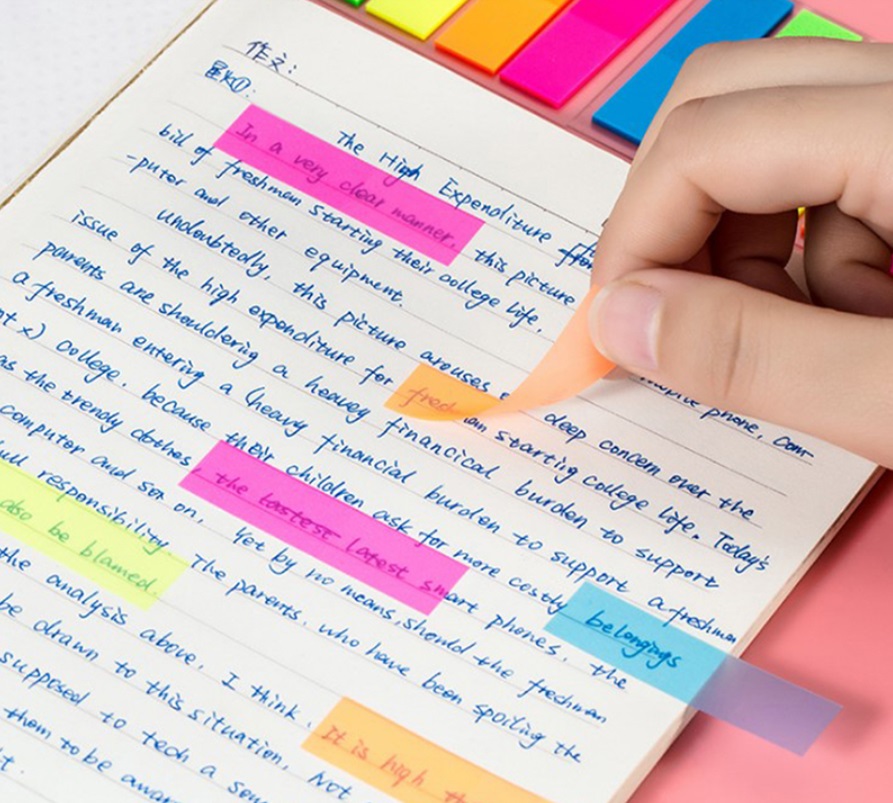 作文:
星火①:
The High Expenditure
In a very clear manner, this picture
bill of freshman starting their college life, phone, com-
-puter and other equipment.
undoubtedly, this picture arouses deep concern over the
issue of the high expenditure for freshman starting college life. Today's
parents are shouldering a heavey financical burden to support
a freshman entering a (heavy financial burden to support a freshman
college, because their children ask for more costly belongings
as the trendy clothes, the tastest latest smart phones, the
computer and so on, Yet by no means, should the freshman
responsibility. The parents, who have been spoiling the
also be blamed.
the analysis above, I think, It is high
be drawn to this situation, Not
supposed to tech a
them to be